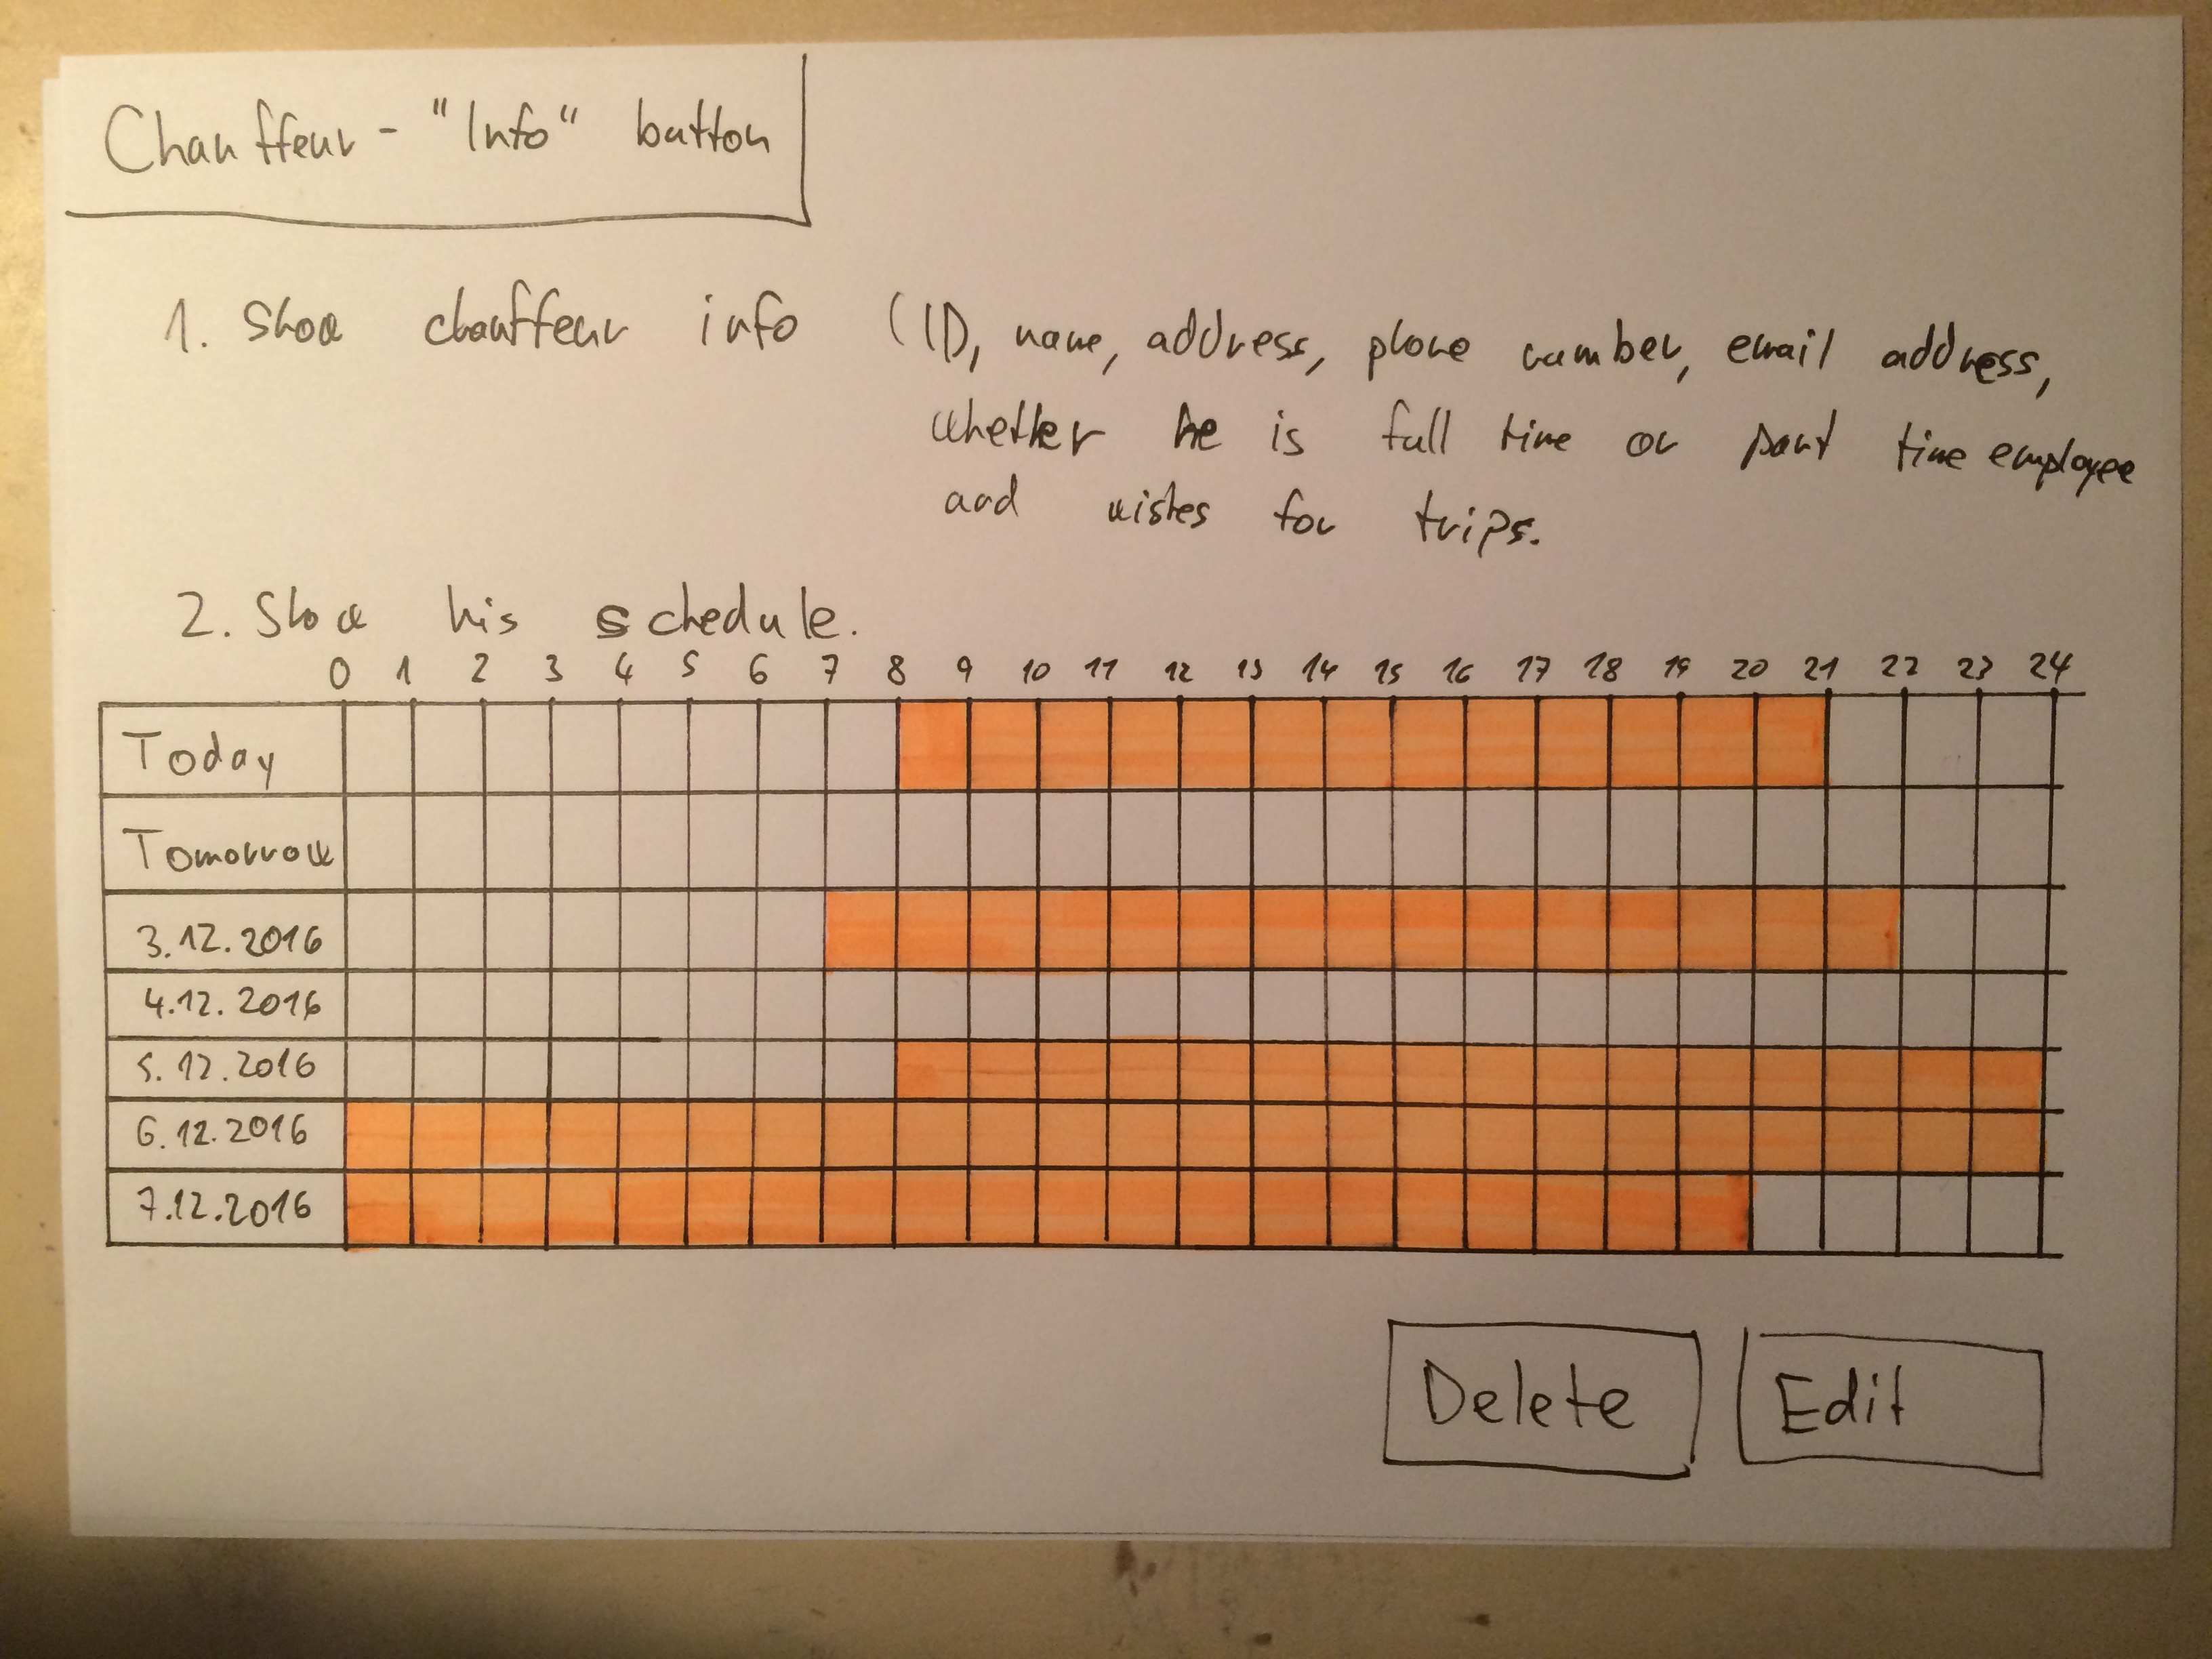 Chauffeur - "Info" button
1. Show chauffeur info (ID, name, address, phone number, email address,
whether he is full time or part time employee
and wishes for trips.
2. Show his schedule.
0 1 2 3 4 5 6 7 8 9 10 11 12 13 14 15 16 17 18 19 20 21 22 23 24
Today
Tomorrow
3.12.2016
4.12.2016
5.12.2016
6.12.2016
7.12.2016
Delete Edit